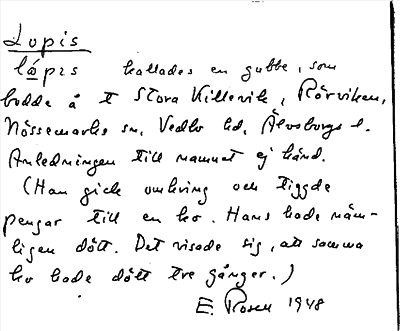 Lopis
låpıs kallades en gubbe, som
bodde å t Stora Killevik, Rörviken,
Nössemarks sn, Vedbo hd, Älvsborgs l.
Anledningen till namnet ej känd.
(Han gick omkring och tiggde
pengar till en ko. Hans hade näm-
ligen dött. Det visade sig, att samma
ko hade dött tre gånger.)
E. Rosell 1948